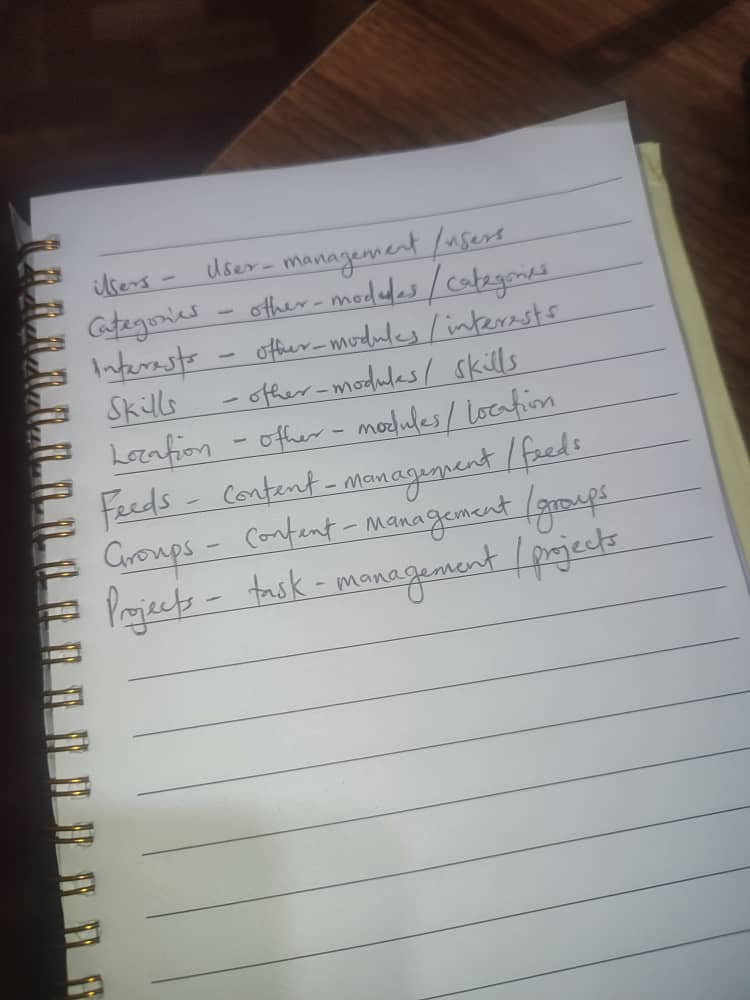 Users - User-management/users
Categories - other-modules/categories
Interests - other-modules/interests
Skills - other-modules/ skills
Location - other-modules/location
Feeds - Content-management/feeds
Groups - Content-management/groups
Projects - task-management/projects